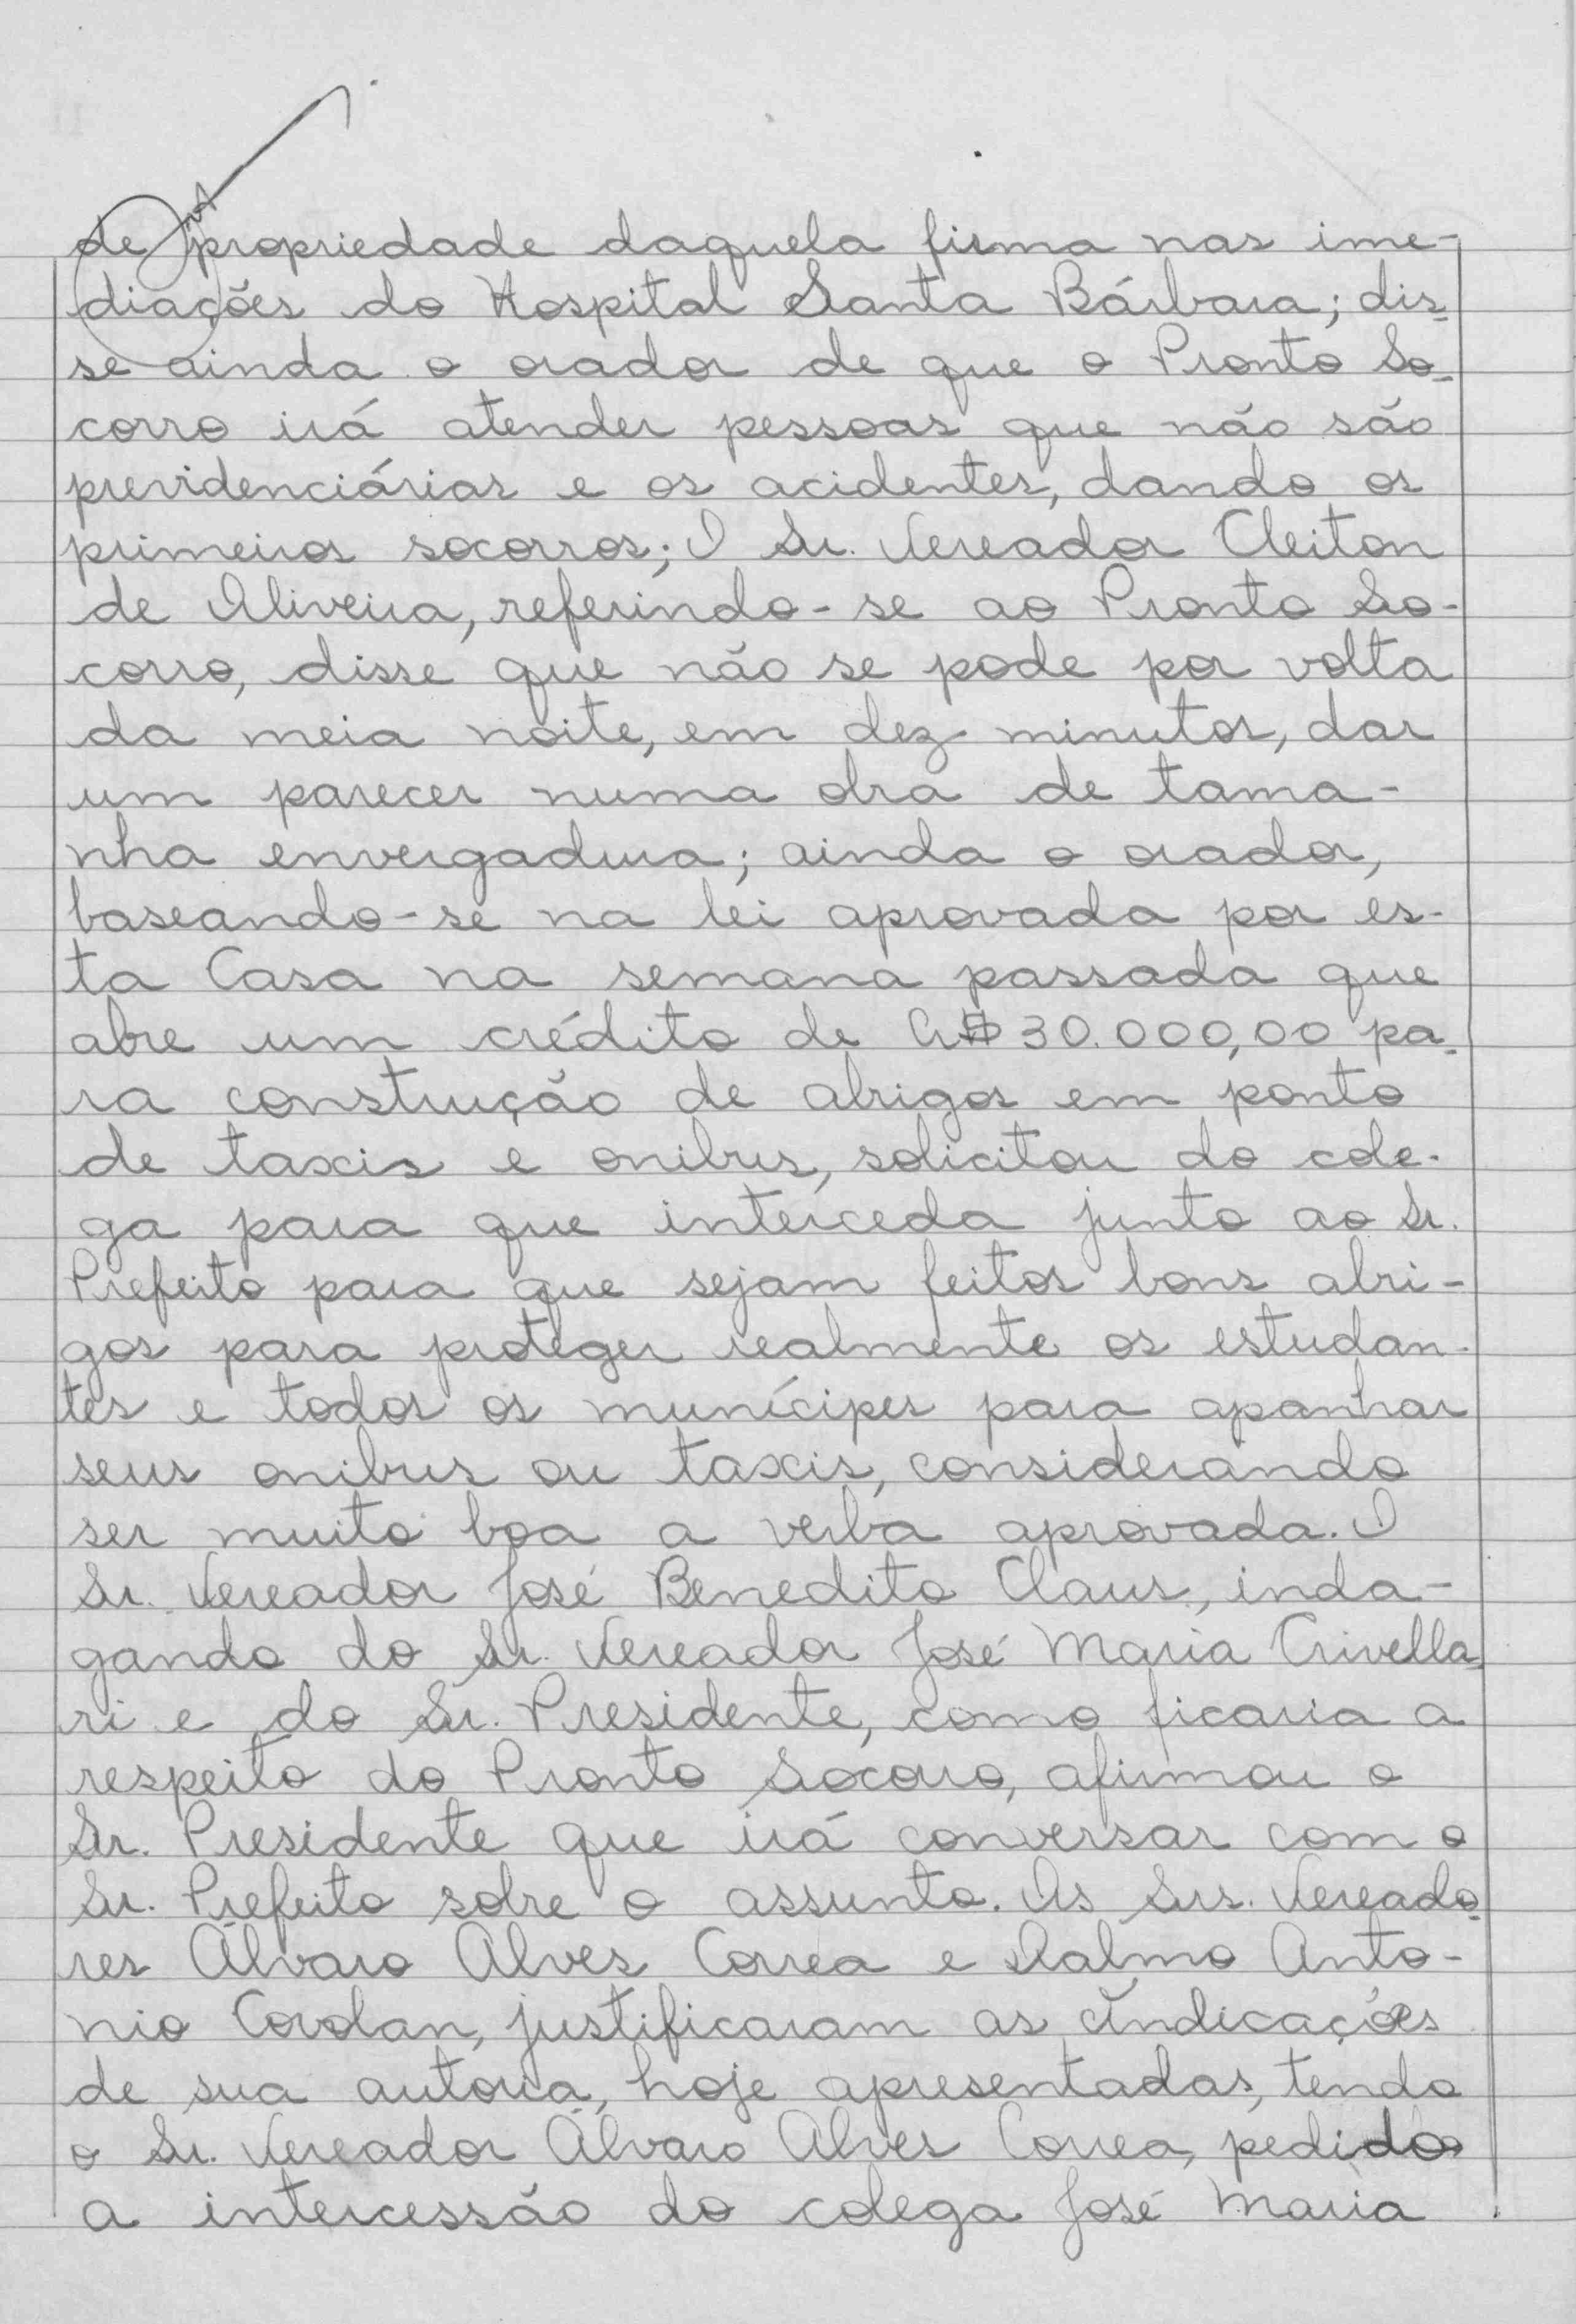 de propriedade daquela firma nas ime-
diações do Hospital Santa Bárbara; dis-
se ainda o orador de que o Pronto So-
corro irá atender pessoas que não são
previdenciárias e os acidentes, dando os
primeiros socorros; O Sr. Vereador Cleiton
de Oliveira, referindo-se ao Pronto So-
corro, disse que não se pode por volta
da meia noite, em dez minutos, dar
um parecer numa obra de tama-
nha envergadura; ainda o orador,
baseando-se na lei aprovada por es-
ta Casa na semana passada que
abre um crédito de Cr$ 30.000,00 pa-
ra construção de abrigos em ponto
de taxis e onibus, solicitou do cole-
ga para que interceda junto ao Sr.
Prefeito para que sejam feitos bons abri-
gos para proteger realmente os estudan-
tes e todos os munícipes para apanhar
seus onibus ou taxis, considerando
ser muito boa a verba aprovada. O
Sr. Vereador José Benedito Claus, inda-
gando do Sr. Vereador José Maria Crivella
ri e do Sr. Presidente, como ficaria a
respeito do Pronto Socorro, afirmou o
Sr. Presidente que irá conversar com o
Sr. Prefeito sobre o assunto. Os Srs. Vereado-
res Álvaro Alves Correa e Dalmo Anto-
nio Covolan, justificaram as indicações
de sua autoria, hoje apresentadas, tendo
o Sr. Vereador Álvaro Alves Correa, pedido
a intercessão do colega José Maria